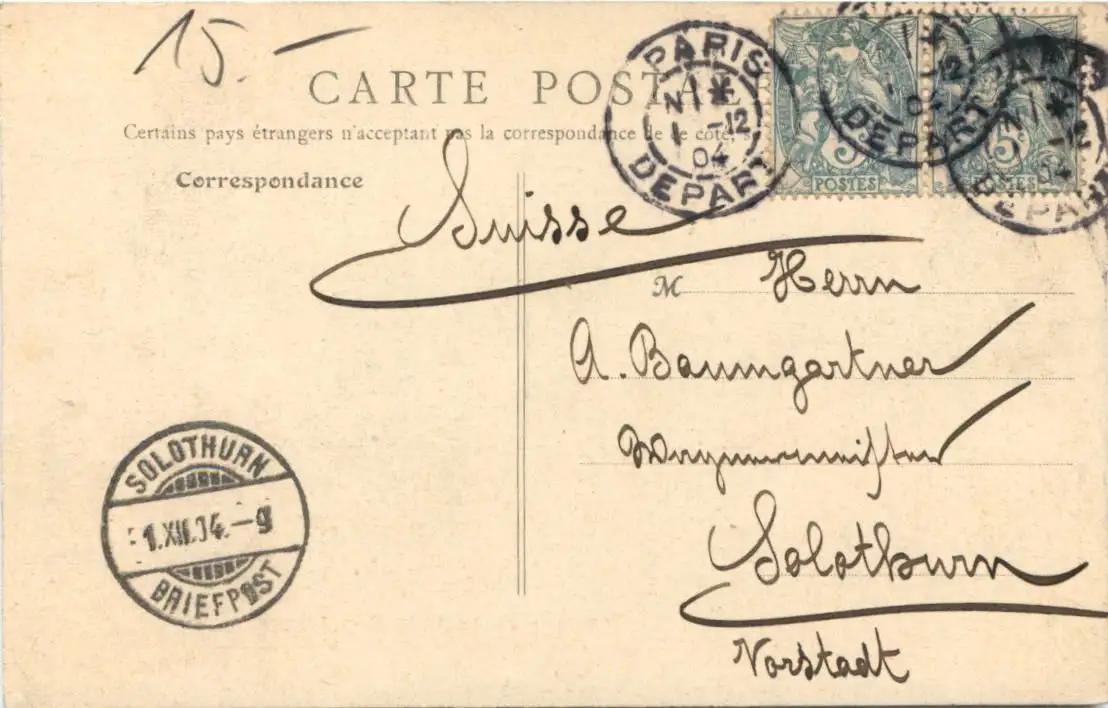 15.-
CARTE POSTALE
Certains pays étrangers n'acceptant pas la correspondance de ce côté, s
Correspondance
PARIS
1 -12
04
DEPART
PARIS
12
04
DEPART
5
POSTES
5
POSTES
Suisse
M Herrn
A. Baumgartner
Wagnermeister
Solothurn
Vorstadt
SOLOTHURN
1.XII.04.-9
BRIEFPOST